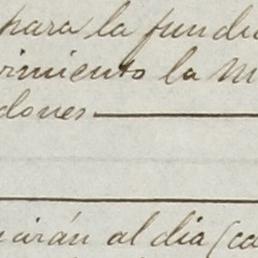 para la fundi
rimiento la M
dones
irán al dia (ca